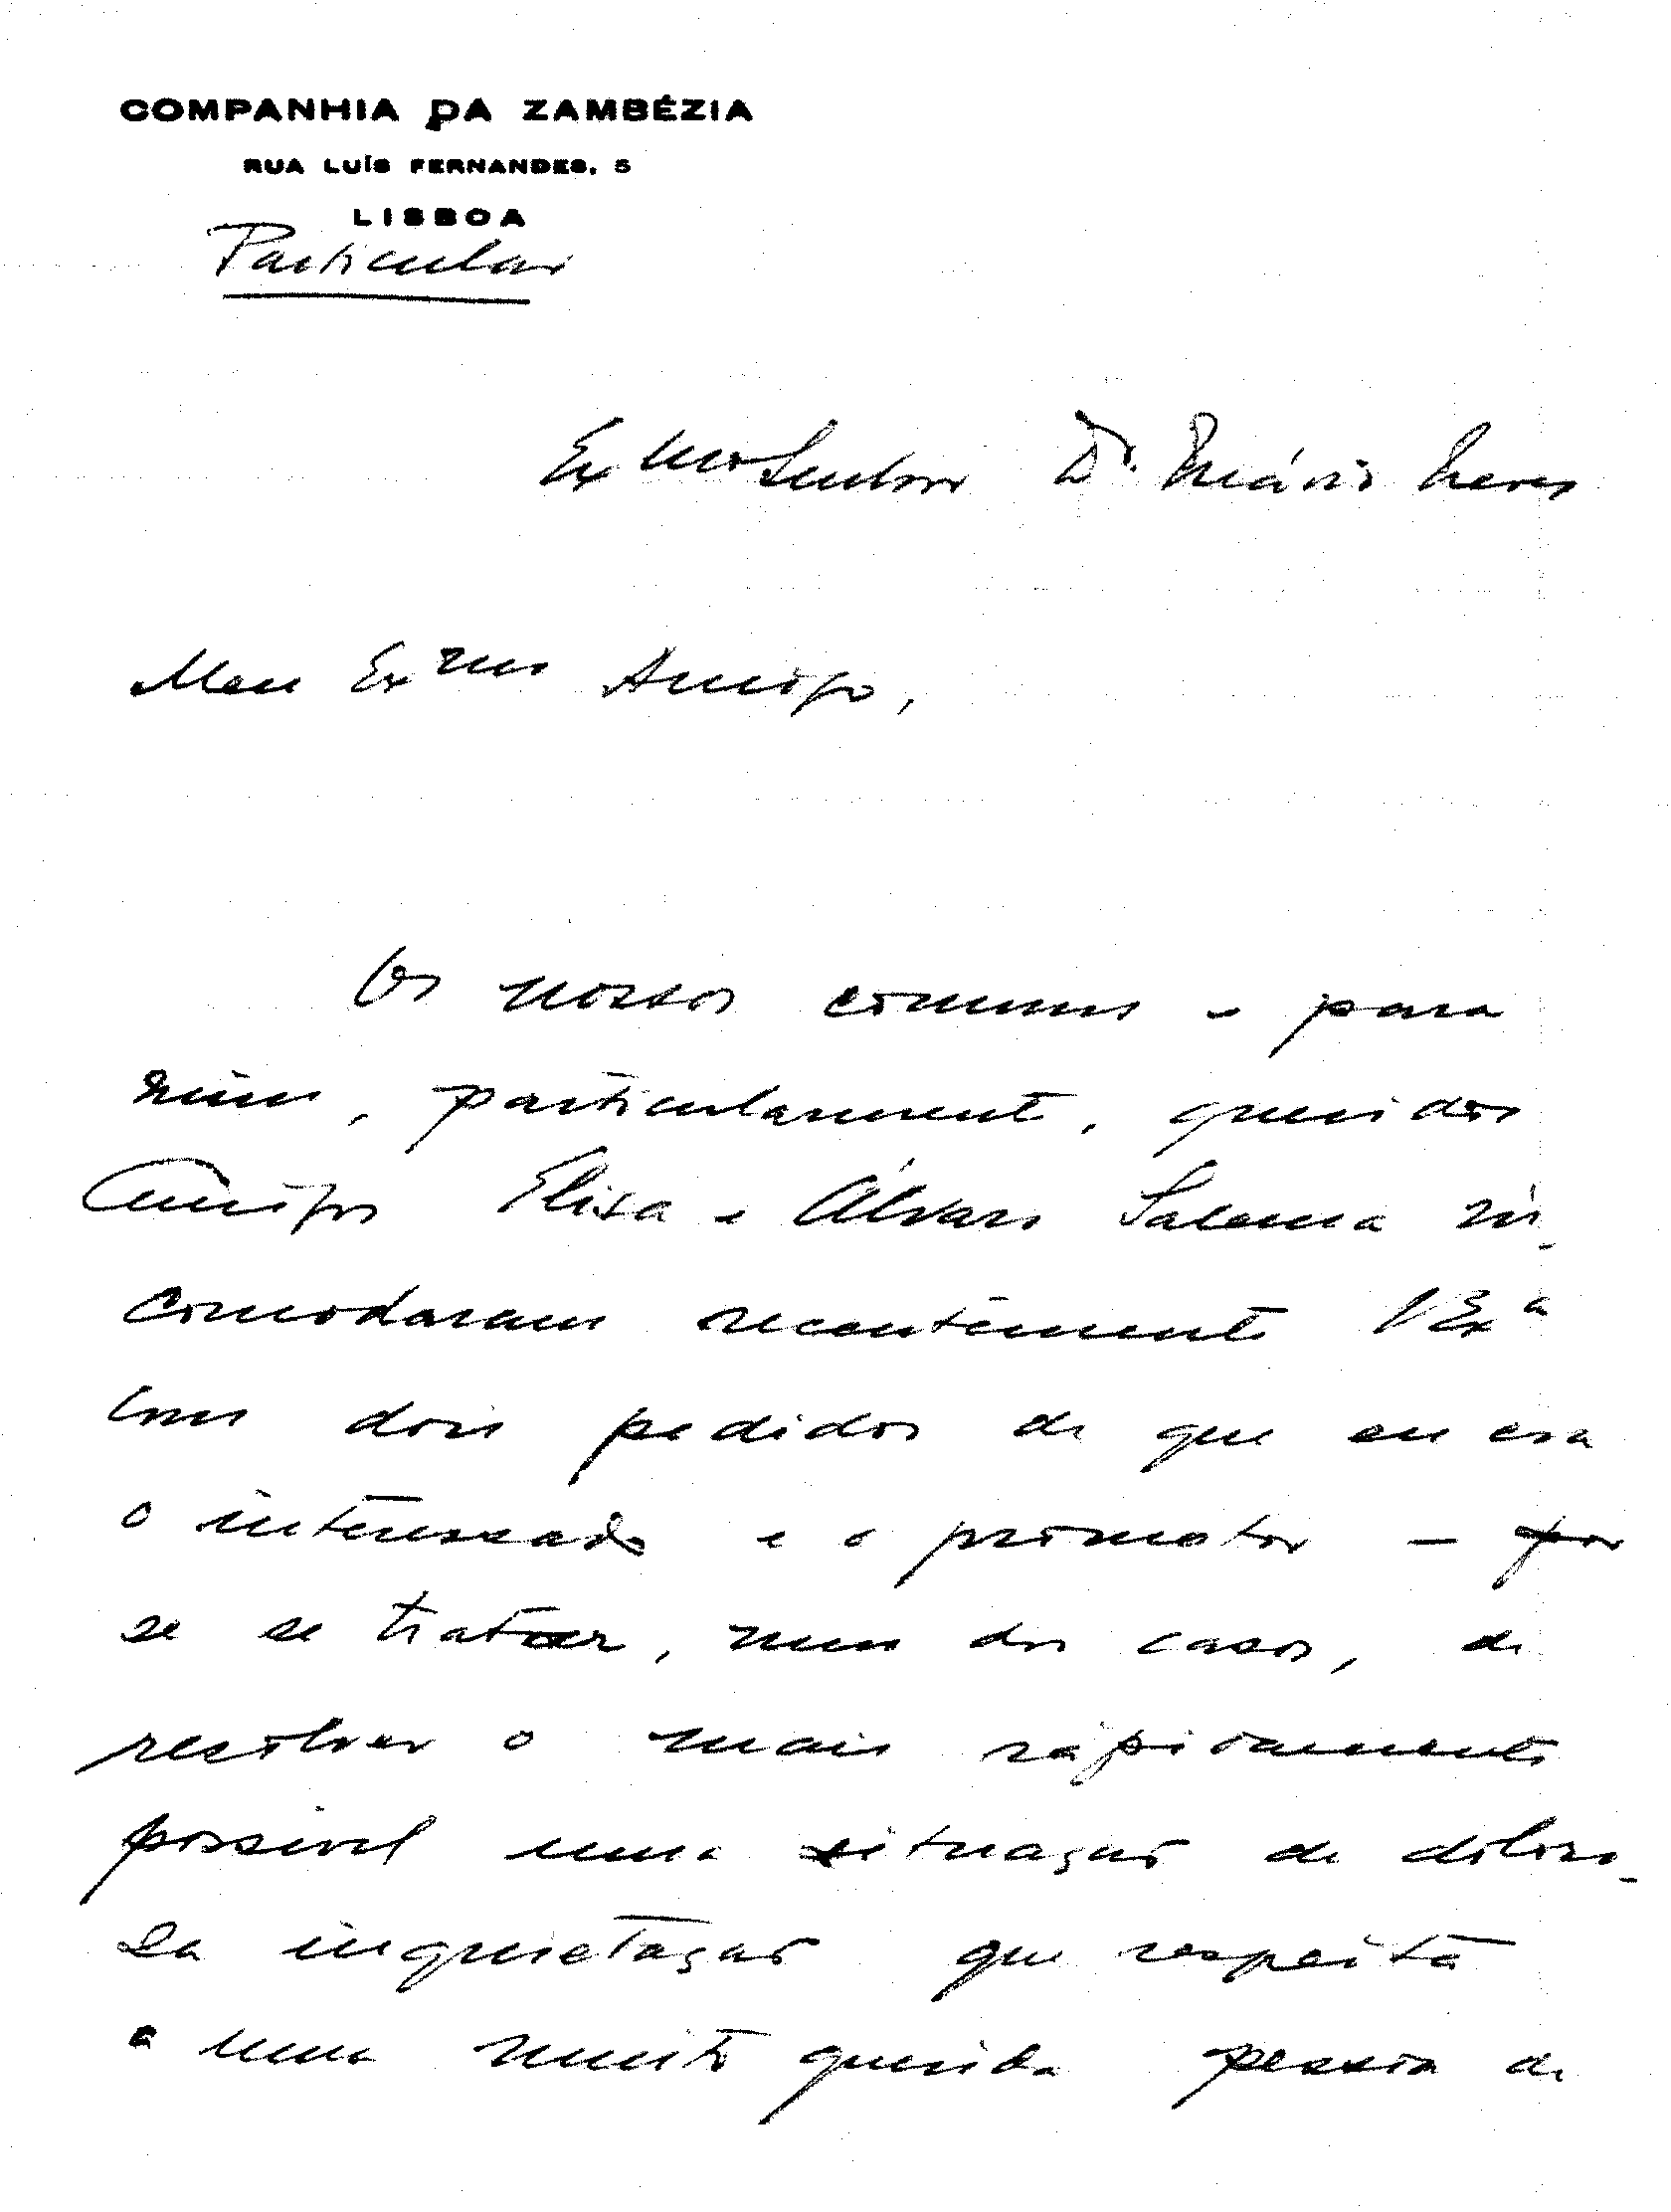 COMPANHIA DA ZAMBÉZIA
RUA LUÍS FERNANDES, 5
LISBOA
Particular
Exmo Senhor Dr. Mário Neves
Meu Exmo Amigo,
Os nossos comuns e para
mim, particularmente, queridos
Amigos Elisa e Álvaro Salema in-
comodaram recentemente V Exª
com dois pedidos de que eu era
o interessado e o promotor – por
se se tratar, num dos casos, de
resolver o mais ràpidamente
possivel uma situação de doloro-
sa inquietação que respeita
a uma muito querida pessoa de